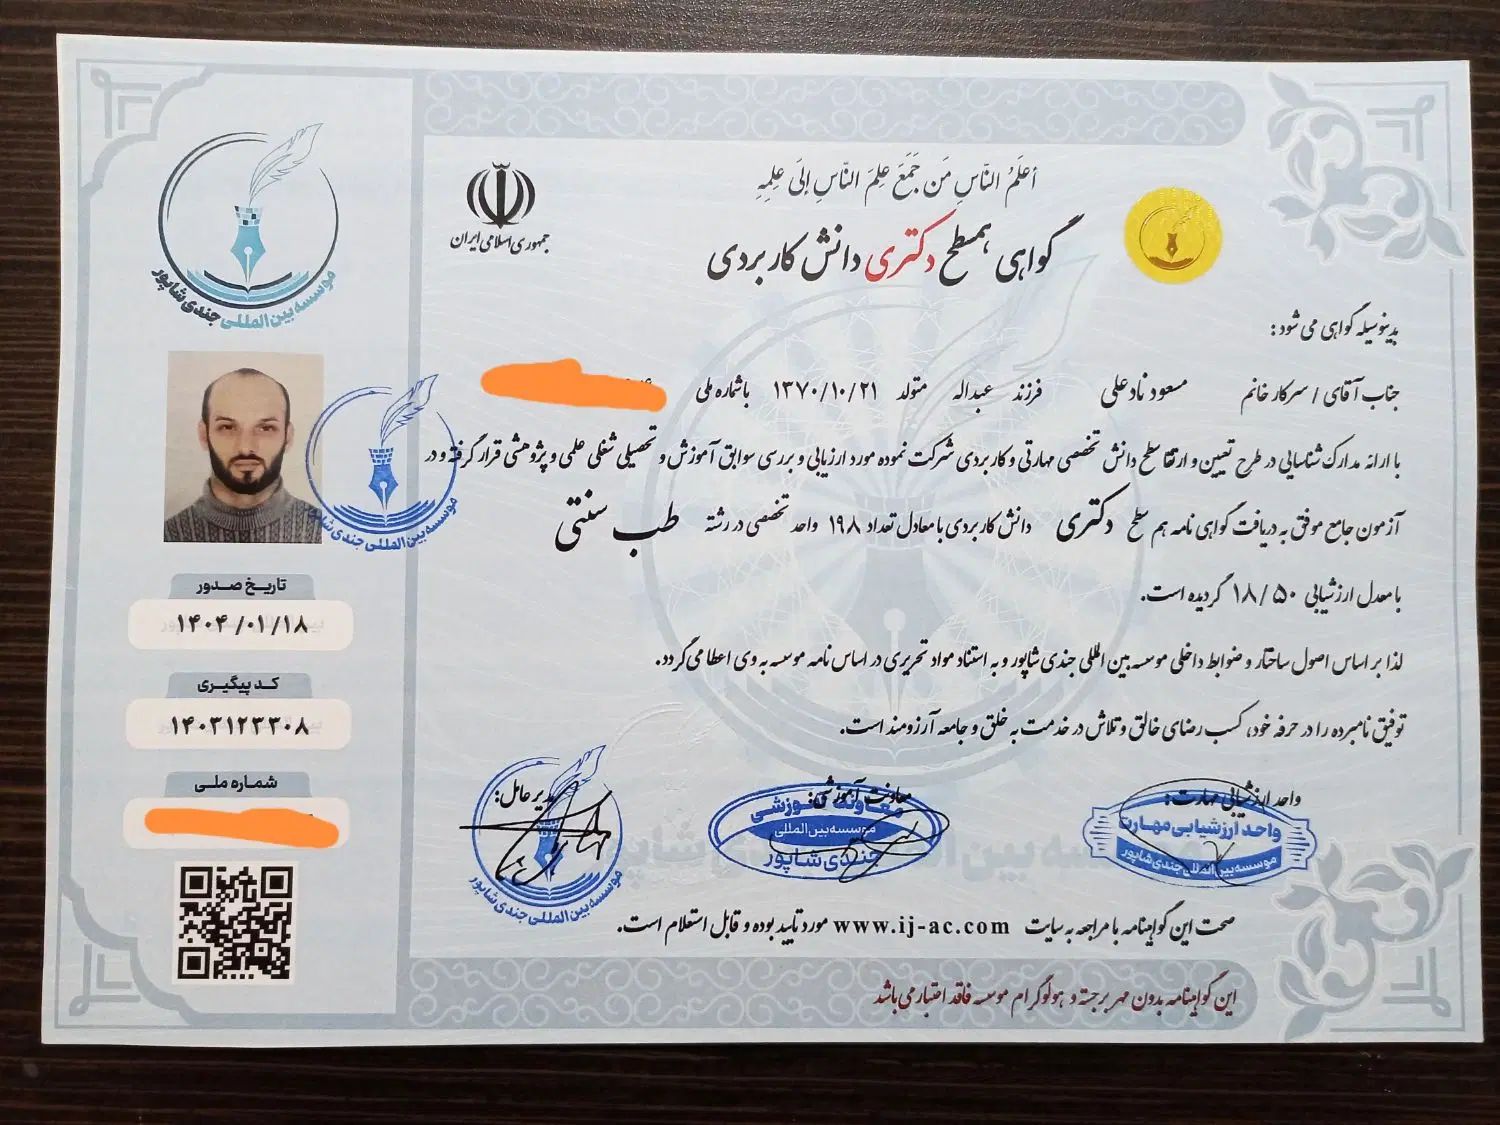 أعلَمُ النّاسِ مَن جَمَعَ عِلمَ النّاسِ إلىَ عِلمِهِ
جمهوری اسلامی ایران
گواهی همسطح دکتری دانش کاربردی
موسسه بین المللی جندی شاپور
بدینوسیله گواهی می شود:
جناب آقای / سرکار خانم مسعود نادعلی فرزند عبداله متولد ۱۳۷۰/۱۰/۲۱ باشماره ملی
با ارائه مدارک شناسایی در طرح تعیین و ارتقا سطح دانش تخصصی مهارتی و کاربردی شرکت نموده مورد ارزیابی و بررسی سوابق آموزش و تحصیلی شغلی علمی و پژوهشی قرار گرفته و در
آزمون جامع موفق به دریافت گواهی نامه هم سطح دکتری دانش کاربردی با معادل تعداد ۱۹۸ واحد تخصصی در رشته طب سنتی
با معدل ارزشیابی ۱۸/۵۰ گردیده است.
لذا بر اساس اصول ساختار و ضوابط داخلی موسسه بین المللی جندی شاپور و به استناد مواد تحریری در اساس نامه موسسه به وی اعطا می گردد.
توفیق نامبرده را در حرفه خود، کسب رضای خالق و تلاش در خدمت به خلق و جامعه آرزومند است.
موسسه بین المللی جندی شاپور
تاریخ صدور
۱۴۰۴/۰۱/۱۸
کد پیگیری
۱۴۰۳۱۲۳۳۰۸
شماره ملی
واحد ارزشیابی مهارت:
واحد ارزشیابی مهارت
موسسه بین المللی جندی شاپور
معاونت آموزشی:
معاونت آموزشی
موسسه بین المللی
جندی شاپور
مدیر عامل:
موسسه بین المللی جندی شاپور
صحت این گواهینامه با مراجعه به سایت www.ij-ac.com مورد تایید بوده و قابل استعلام است.
این گواهینامه بدون مهر برجسته و هولوگرام موسسه فاقد اعتبار می باشد